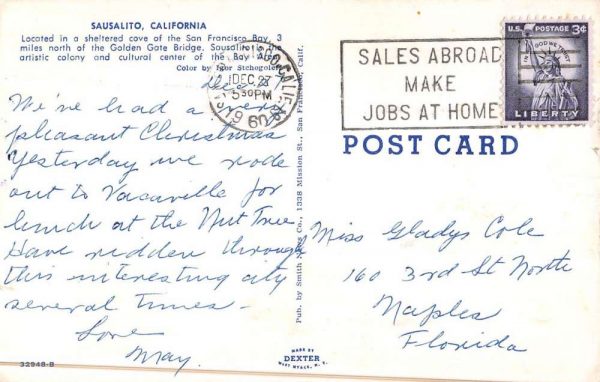 SAUSALITO, CALIFORNIA
Located in a sheltered cove of the San Francisco Bay, 3
miles north of the Golden Gate Bridge. Sausalito is the
artistic colony and cultural center of the Bay Area.
Color by Igor Stchogoleff
We've had a very
pleasant Christmas
Yesterday we rode
out to Vacaville for
lunch at the Nut Tree.
Have ridden through
this interesting city
several times -
Love
May.
32948-B
Pub. by Smith News Co., 1338 Mission St., San Francisco, Calif.
MADE BY
DEXTER
WEST NYACK, N. Y.
DEC 27
5 30 PM
1960
CALIF.
SALES ABROAD
MAKE
JOBS AT HOME
U.S. POSTAGE 3¢
IN GOD WE TRUST
LIBERTY
POST CARD
Miss Gladys Cole
160 3rd St North
Naples
Florida